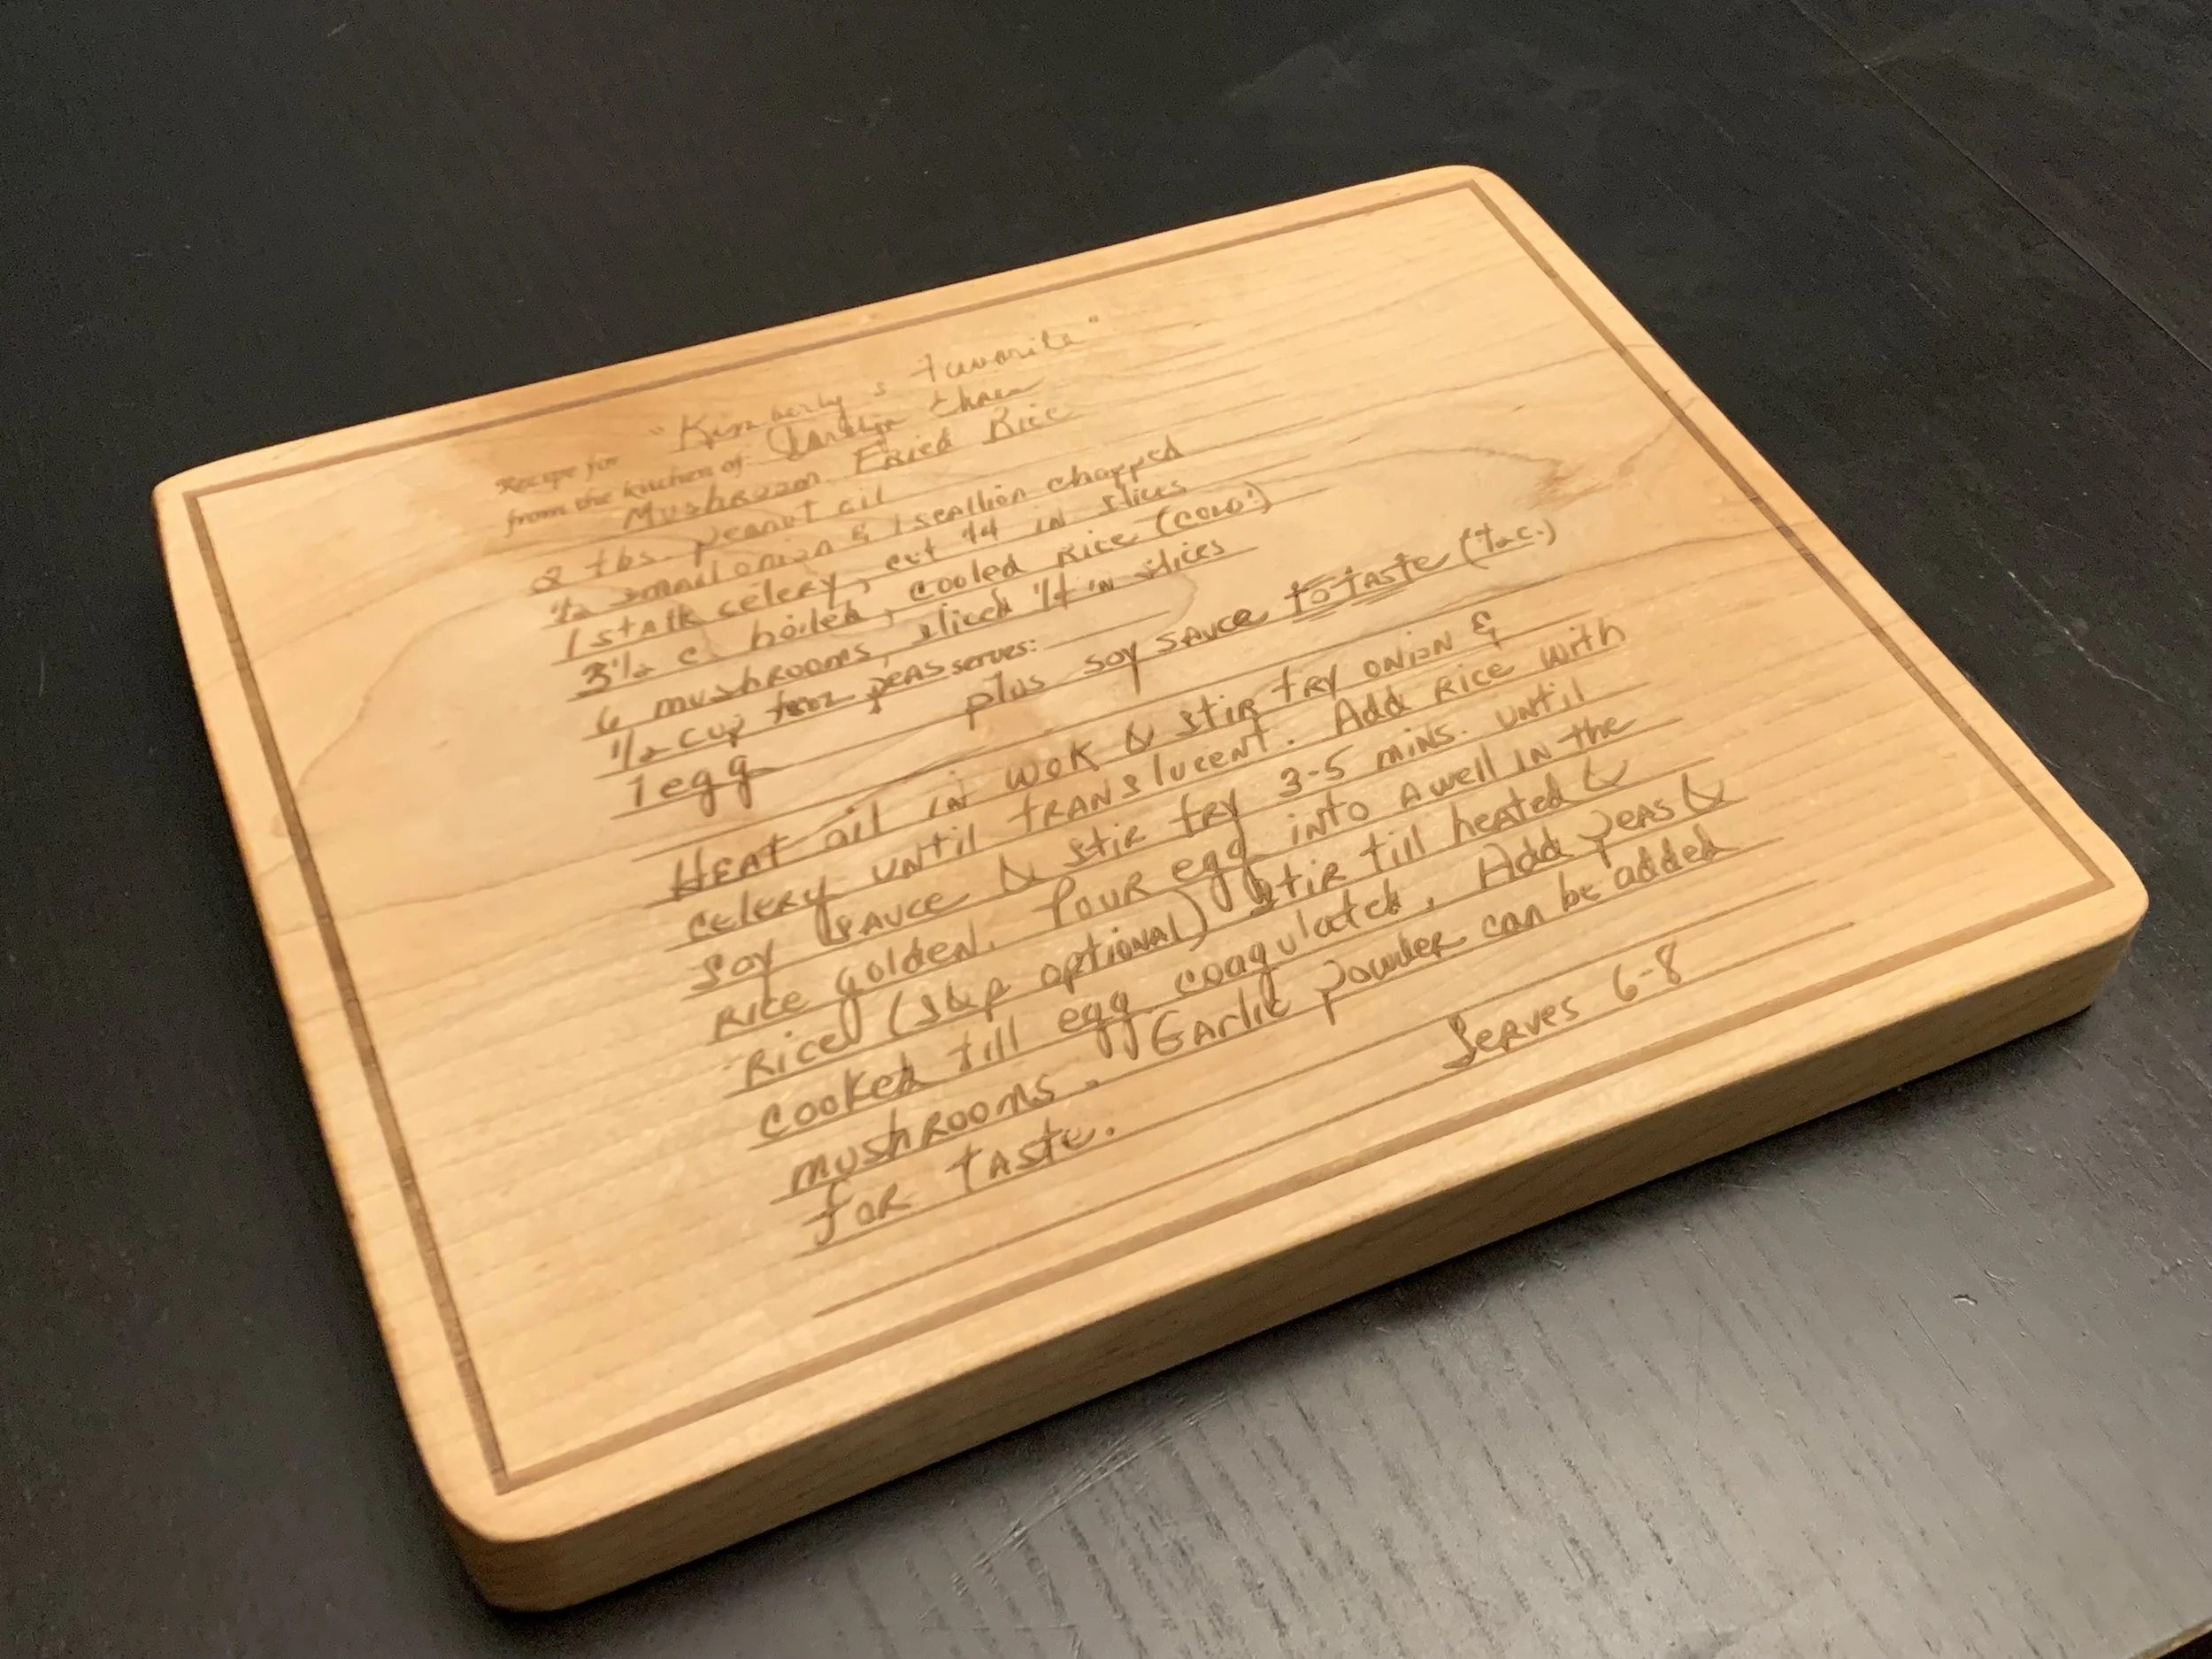 "Kimberly's favorite"
Recipe for
from the kitchen of
Mushroom Fried Rice
2 tbs. peanut oil
1/2 small onion & 1 scallion chopped
1 stalk celery, cut 1/4 in slices
3 1/2 c. boiled, cooled rice (cold!)
6 mushrooms, sliced 1/4 in slices
1/2 cup peas serves:
1 egg plus soy sauce to taste (1/2 c.)
Heat oil in wok & stir fry onion &
celery until translucent. Add rice with
soy sauce & stir fry 3-5 mins. until
rice golden. Pour egg into a well in the
rice (step optional) stir till heated &
cooked till egg coagulated. Add peas &
mushrooms. Garlic powder can be added
for taste.
Serves 6-8